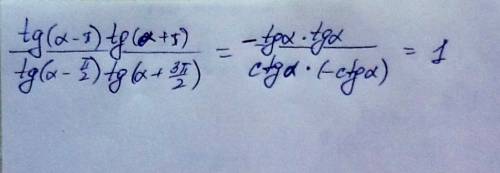 tg(α-π) tg(α+π) / tg(α-π/2) tg(α+3π/2) = -tgα·tgα / ctgα·(-ctgα) = 1